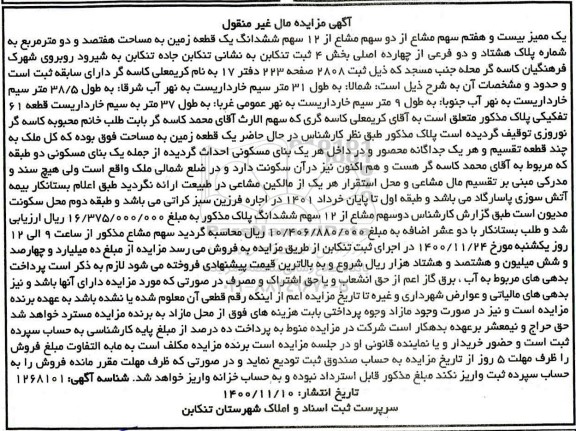 آگهی مزایده مال غیر منقول
یک ممیز بیست و هفتم سهم مشاع از دو سهم مشاع از ۱۲ سهم ششدانگ یک قطعه زمین به مساحت هفتصد و دو مترمربع به
شماره پلاک هشتاد و دو فرعی از چهارده اصلی بخش ۴ ثبت تنکابن به نشانی تنکابن جاده تنکابن به شیرود روبروی شهرک
فرهنگیان کاسه گر محله جنب مسجد که ذیل ثبت ۲۸۰۸ صفحه ۲۲۳ دفتر ۱۷ به نام کریمعلی کاسه گر دارای سابقه ثبت است
و حدود و مشخصات آن به شرح ذیل است: شمالا: به طول ۳۱ متر سیم خارداریست به نهر آب شرقا: به طول ۳۸/۵ متر سیم
خارداریست به نهر آب جنوبا: به طول ۹ متر سیم خارداریست به نهر عمومی غربا: به طول ۳۷ متر به سیم خارداریست قطعه ۶۱
تفکیکی پلاک مذکور متعلق است به آقای کریمعلی کاسه گری که سهم الارث آقای محمد کاسه گر بابت طلب خانم محبوبه کاسه گر
نوروزی توقیف گردیده است پلاک مذکور طبق نظر کارشناس در حال حاضر یک قطعه زمین به مساحت فوق بوده که کل ملک به
چند قطعه تقسیم و هر یک جداگانه محصور و در داخل هر یک بنای مسکونی احداث گردیده از جمله یک بنای مسکونی دو طبقه
که مربوط به آقای محمد کاسه گر هست و هم اکنون نیز در آن سکونت دارد و در ضلع شمالی ملک واقع است ولی هیچ سند و
مدرکی مبنی بر تقسیم مال مشاعی و محل استقرار هر یک از مالکین مشاعی در طبیعت ارائه نگردید طبق اعلام بستانکار بیمه
آتش سوزی پاسارگاد می باشد و طبقه اول تا پایان خرداد ۱۴۰۱ در اجاره فرزین سبز کراتی می باشد و طبقه دوم محل سکونت
مدیون است طبق گزارش کارشناس دوسهم مشاع از ۱۲ سهم ششدانگ پلاک مذکور به مبلغ ۱۶/۳۷۵/۰۰۰/۰۰۰ ریال ارزیابی
شد و طلب بستانکار با دو عشر اضافه به مبلغ ۱۰/۴۰۶/۸۸۰/۰۰۰ ریال محاسبه گردید سهم مشاع مذکور از ساعت ۹ الی ۱۲
روز یکشنبه مورخ ۱۴۰۰/۱۱/۲۴ در اجرای ثبت تنکابن از طریق مزایده به فروش می رسد مزایده از مبلغ ده میلیارد و چهارصد
و شش میلیون و هشتصد و هشتاد هزار ریال شروع و به بالاترین قیمت پیشنهادی فروخته می شود لازم به ذکر است پرداخت
بدهی های مربوط به آب ، برق گاز اعم از حق انشعاب و یا حق اشتراک و مصرف در صورتی که مورد مزایده دارای آنها باشد و نیز
بدهی های مالیاتی و عوارض شهرداری و غیره تا تاریخ مزایده اعم از اینکه رقم قطعی آن معلوم شده یا نشده باشد به عهده برنده
مزایده است و نیز در صورت وجود مازاد وجوه پرداختی بابت هزینه های فوق از محل مازاد به برنده مزایده مسترد خواهد شد
حق حراج و نیمعشر برعهده بدهکار است شرکت در مزایده منوط به پرداخت ده درصد از مبلغ پایه کارشناسی به حساب سپرده
ثبت است و حضور خریدار و یا نماینده قانونی او در جلسه مزایده است برنده مزایده مکلف است به مابه التفاوت مبلغ فروش
را ظرف مهلت ۵ روز از تاریخ مزایده به حساب صندوق ثبت تودیع نماید و در صورتی که ظرف مهلت مقرر مانده فروش را به
حساب سپرده ثبت واریز نکند مبلغ مذکور قابل استرداد نبوده و به حساب خزانه واریز خواهد شد. شناسه آگهی: ۱۲۶۸۱۰۱
تاریخ انتشار: ۱۴۰۰/۱۱/۱۰
سرپرست ثبت اسناد و املاک شهرستان تنکابن